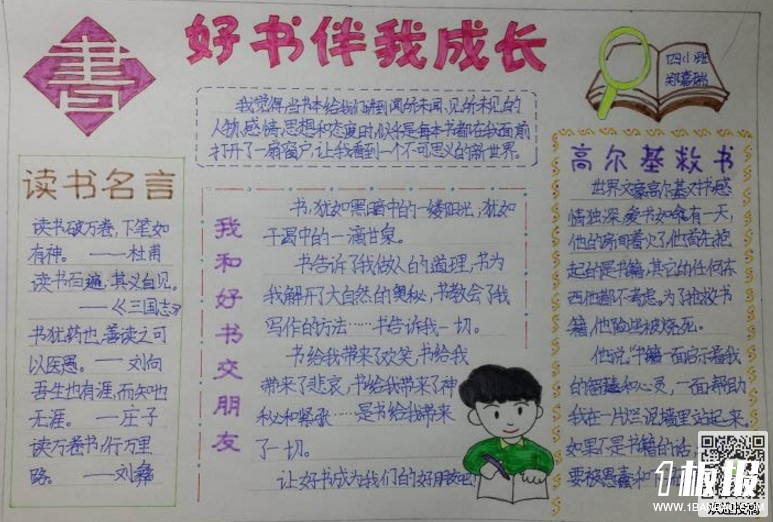 書
好书伴我成长
四(1)班
郑嘉瑞
我觉得,当书本给我们讲到闻所未闻,见所未见的
人物、感情、思想和态度时,似乎是每本书都在我面前
打开了一扇窗户,让我看到一个不可思义的新世界。
读书名言
读书破万卷,下笔如
有神。——杜甫
读书百遍,其义自见。
——《三国志》
书犹药也,善读之可
以医愚。——刘向
吾生也有涯,而知也
无涯。——庄子
读万卷书,行万里
路。——刘彝
我和好书交朋友
书,犹如黑暗中的一缕阳光,犹如
干渴中的一滴甘泉。
书告诉了我做人的道理,书为
我解开了大自然的奥秘,书教会了我
写作的方法……书告诉我一切。
书给我带来了欢笑,书给我
带来了悲哀,书给我带来了神
秘和紧张……是书给我带来
了一切。
让好书成为我们的好朋友吧!
高尔基救书
世界文豪高尔基对书感
情独深,爱书如命。有一天,
他的房间着火了,他首先抱
起的是书籍,其它的任何东
西他都不考虑。为了抢救书
籍,他险些被烧死。
他说:“书籍一面启示着我
的智慧和心灵,一面帮助
我在一片烂泥塘里站起来,
如果不是书籍的话,
要被愚蠢和下
1板报
WWW.1BANBAO.COM
欢迎投稿